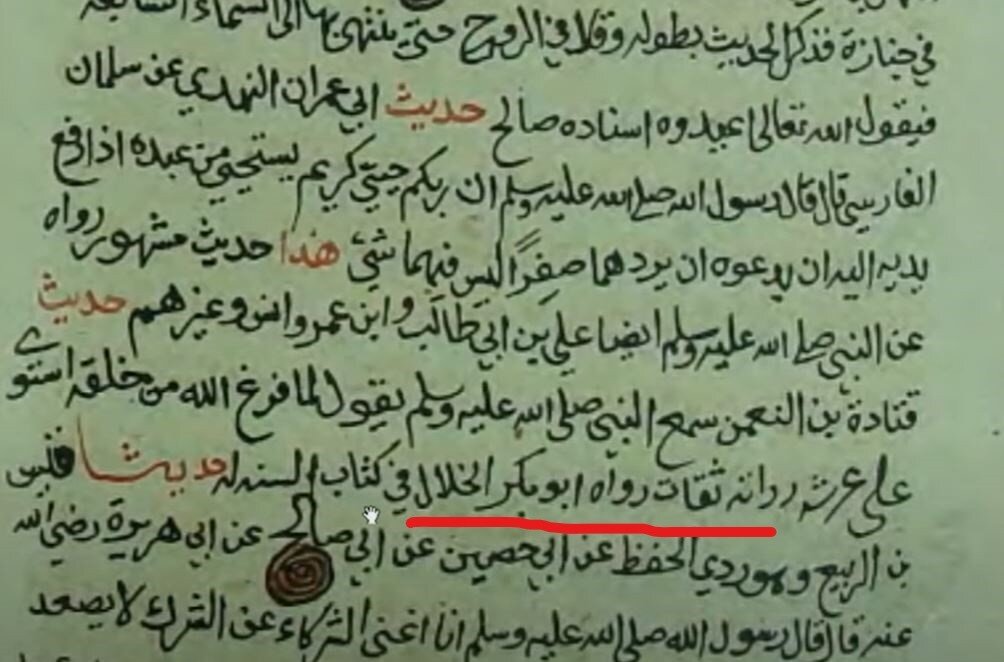 في جنازة فذكر الحديث بطوله وقال في الروح حتى ينتهى بها الى السماء السابعة
فيقول الله تعالى اسناده صالح حديث ابي عمران النهدي عن سلمان
الفارسي قال قال رسول الله صلى الله عليه وسلم ان ربكم حيي كريم يستحيي من عبده اذا رفع
يديه اليه ان يدعوه ان يردهما صفرًا ليس فيهما شئ هذا حديث مشهور رواه
عن النبي صلى الله عليه وسلم ايضا علي بن ابي طالب وابن عمر وانس وغيرهم حديث
قتادة بن النعمن سمع النبي صلى الله عليه وسلم يقول لما فرغ الله من خلقه استوى
على عرشه رواته ثقات رواه ابو بكر الخلال في كتاب السنة له حديث قيس
بن الربيع وهو ردي الحفظ عن ابي حصين عن ابي صالح عن ابي هريرة رضي الله
عنه قال قال رسول الله صلى الله عليه وسلم انا اغنى الشركاء عن الشرك لا يصعد